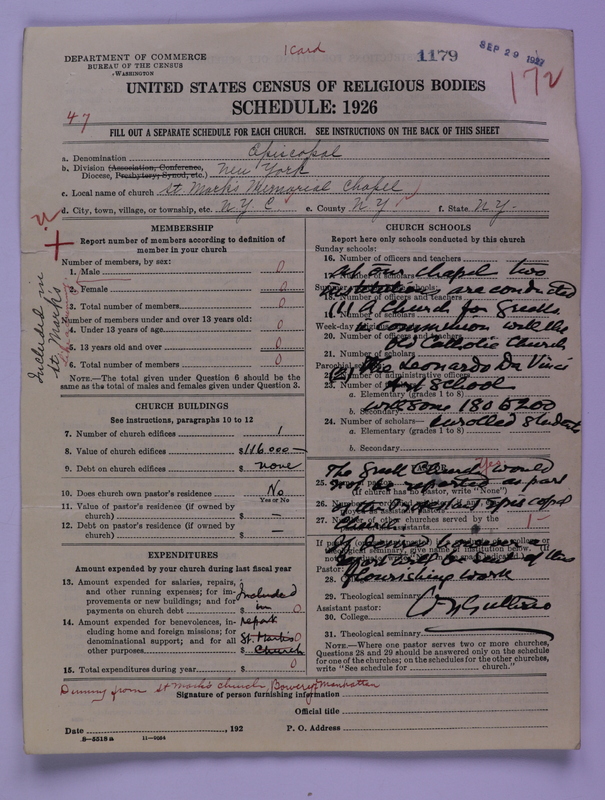 1 Card
DEPARTMENT OF COMMERCE
BUREAU OF THE CENSUS
WASHINGTON
1179
SEP 29 1927
172
UNITED STATES CENSUS OF RELIGIOUS BODIES
SCHEDULE: 1926
47
FILL OUT A SEPARATE SCHEDULE FOR EACH CHURCH. SEE INSTRUCTIONS ON THE BACK OF THIS SHEET
a. Denomination Episcopal
b. Division (Association, Conference, Diocese, Presbytery, Synod, etc.) New York
c. Local name of church St Mark's Memorial Chapel
d. City, town, village, or township, etc. N.Y.C e. County N.Y. f. State N.Y.
MEMBERSHIP
Report number of members according to definition of
member in your church
Number of members, by sex:
1. Male 0
2. Female 0
3. Total number of members 0
Number of members under and over 13 years old:
4. Under 13 years of age 0
5. 13 years old and over 0
6. Total number of members 0
NOTE.—The total given under Question 6 should be the
same as the total of males and females given under Question 3.
Included in
St Mark's
CHURCH BUILDINGS
See instructions, paragraphs 10 to 12
7. Number of church edifices 1
8. Value of church edifices $116,000—
9. Debt on church edifices $ none
10. Does church own pastor's residence No
Yes or No
11. Value of pastor's residence (if owned by
church) $ —
12. Debt on pastor's residence (if owned by
church) $ —
EXPENDITURES
Amount expended by your church during last fiscal year
13. Amount expended for salaries, repairs,
and other running expenses; for improvements or new buildings; and for
payments on church debt $ Included in 0
14. Amount expended for benevolences, including home and foreign missions; for
denominational support; and for all
other purposes $ report St. Marks Church 0
15. Total expenditures during year $ 0
CHURCH SCHOOLS
Report here only schools conducted by this church
Sunday schools:
16. Number of officers and teachers
17. Number of scholars
18. Number of officers and teachers
19. Number of scholars
20. Number of officers and teachers
21. Number of scholars
22. Number of administrative officers
23. Number of
a. Elementary (grades 1 to 8)
b. Secondary
24. Number of scholars—
a. Elementary (grades 1 to 8)
b. Secondary
At our chapel two
are conducted
(1) A Church for Greeks
in Communion with the
Old Catholic Church
(2) The Leonardo Da Vinci
Art School
with some 180 to 200
enrolled students
The Greek Church would
not be reported as part
of the Protestant Episcopal
Church
report will be sent of this
flourishing work
25.
(If church has no pastor, write "None")
26.
27. Number of other churches served by the 1
Pastor:
28.
29. Theological seminary
Assistant pastor:
30. College
31. Theological seminary
NOTE.—Where one pastor serves two or more churches,
Questions 28 and 29 should be answered only on the schedule
for one of the churches; on the schedules for the other churches,
write "See schedule for church."
Dummy from St Mark's Church, Bowery, Manhattan
Signature of person furnishing information
Official title
Date , 192 P. O. Address
8—5518a 11—9084